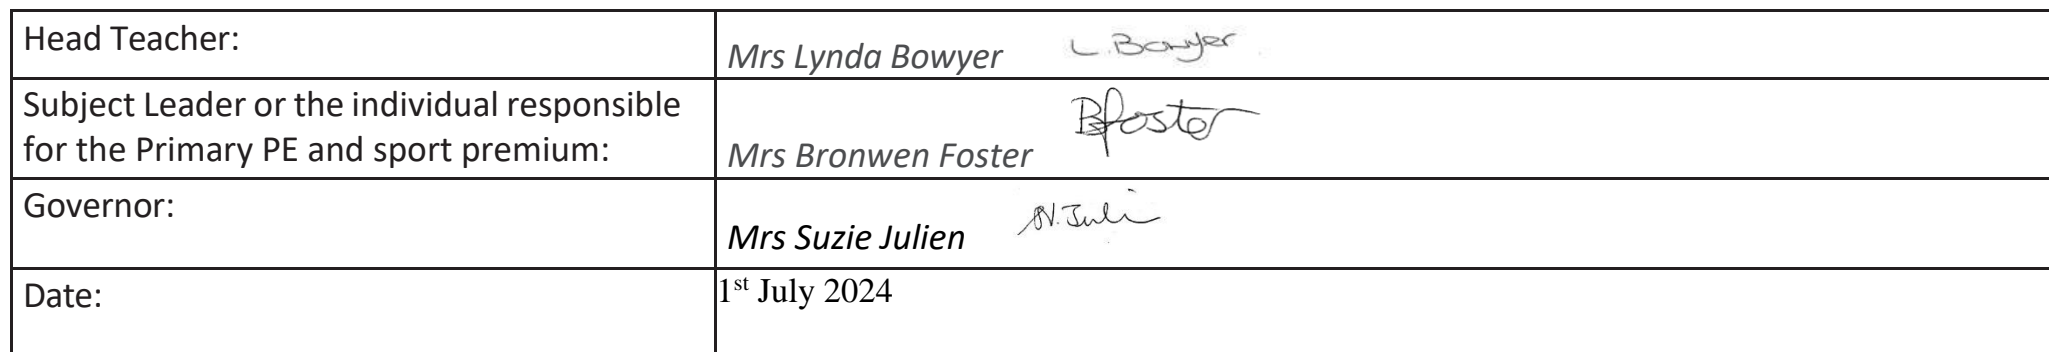 Head Teacher:
Mrs Lynda Bowyer L. Bowyer
Subject Leader or the individual responsible
for the Primary PE and sport premium:
Mrs Bronwen Foster BFoster
Governor:
Mrs Suzie Julien
Date:
1st July 2024